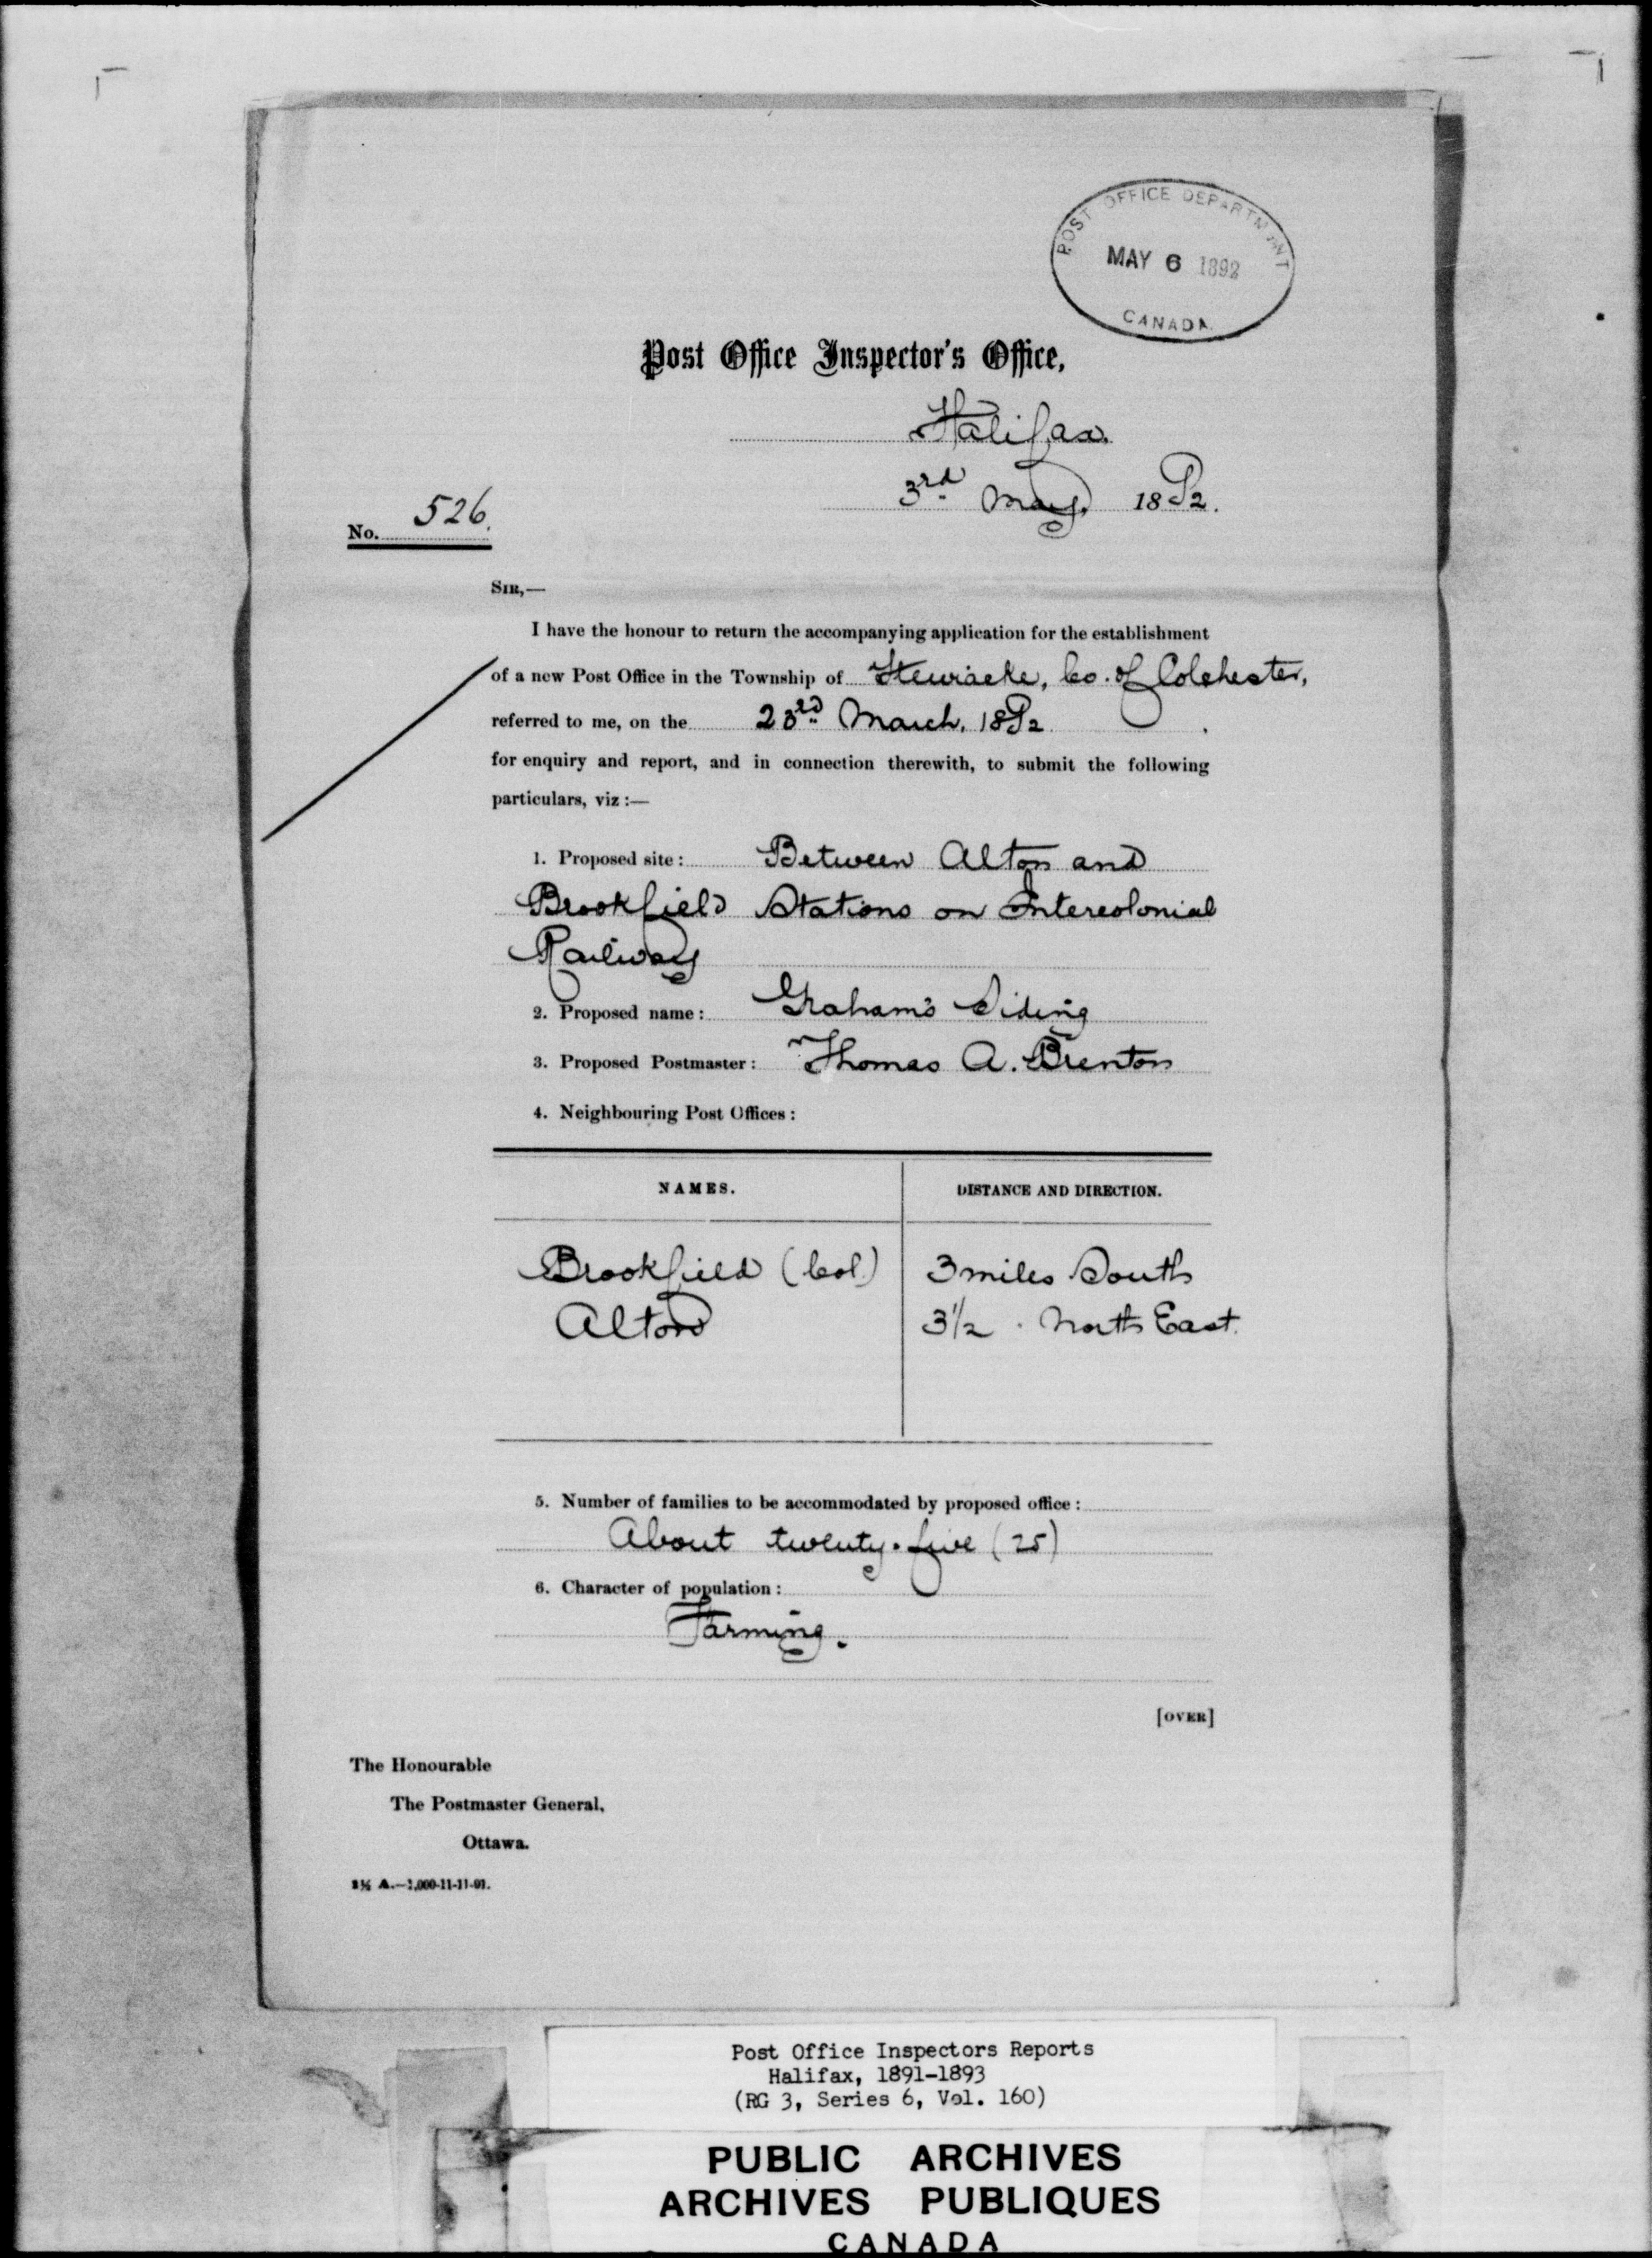 POST OFFICE DEPARTMENT
MAY 6 1892
CANADA
Post Office Inspector's Office,
Halifax.
3rd May, 1892.
No. 526.
SIR,—
I have the honour to return the accompanying application for the establishment
of a new Post Office in the Township of Stewiacke, Co. of Colchester,
referred to me, on the 23rd March, 1892.
for enquiry and report, and in connection therewith, to submit the following
particulars, viz :—
1. Proposed site: Between Alton and
Brookfield Stations on Intercolonial
Railway
2. Proposed name: Graham's Siding
3. Proposed Postmaster: Thomas A. Brenton
4. Neighbouring Post Offices:
NAMES. DISTANCE AND DIRECTION.
Brookfield (Col.) 3 miles South
Alton 3 1/2 " North East.
5. Number of families to be accommodated by proposed office:
About twenty-five (25)
6. Character of population:
Farming.
[OVER]
The Honourable
The Postmaster General,
Ottawa.
A.—1,000-11-11-91.
Post Office Inspectors Reports
Halifax, 1891-1893
(RG 3, Series 6, Vol. 160)
PUBLIC ARCHIVES
ARCHIVES PUBLIQUES
CANADA